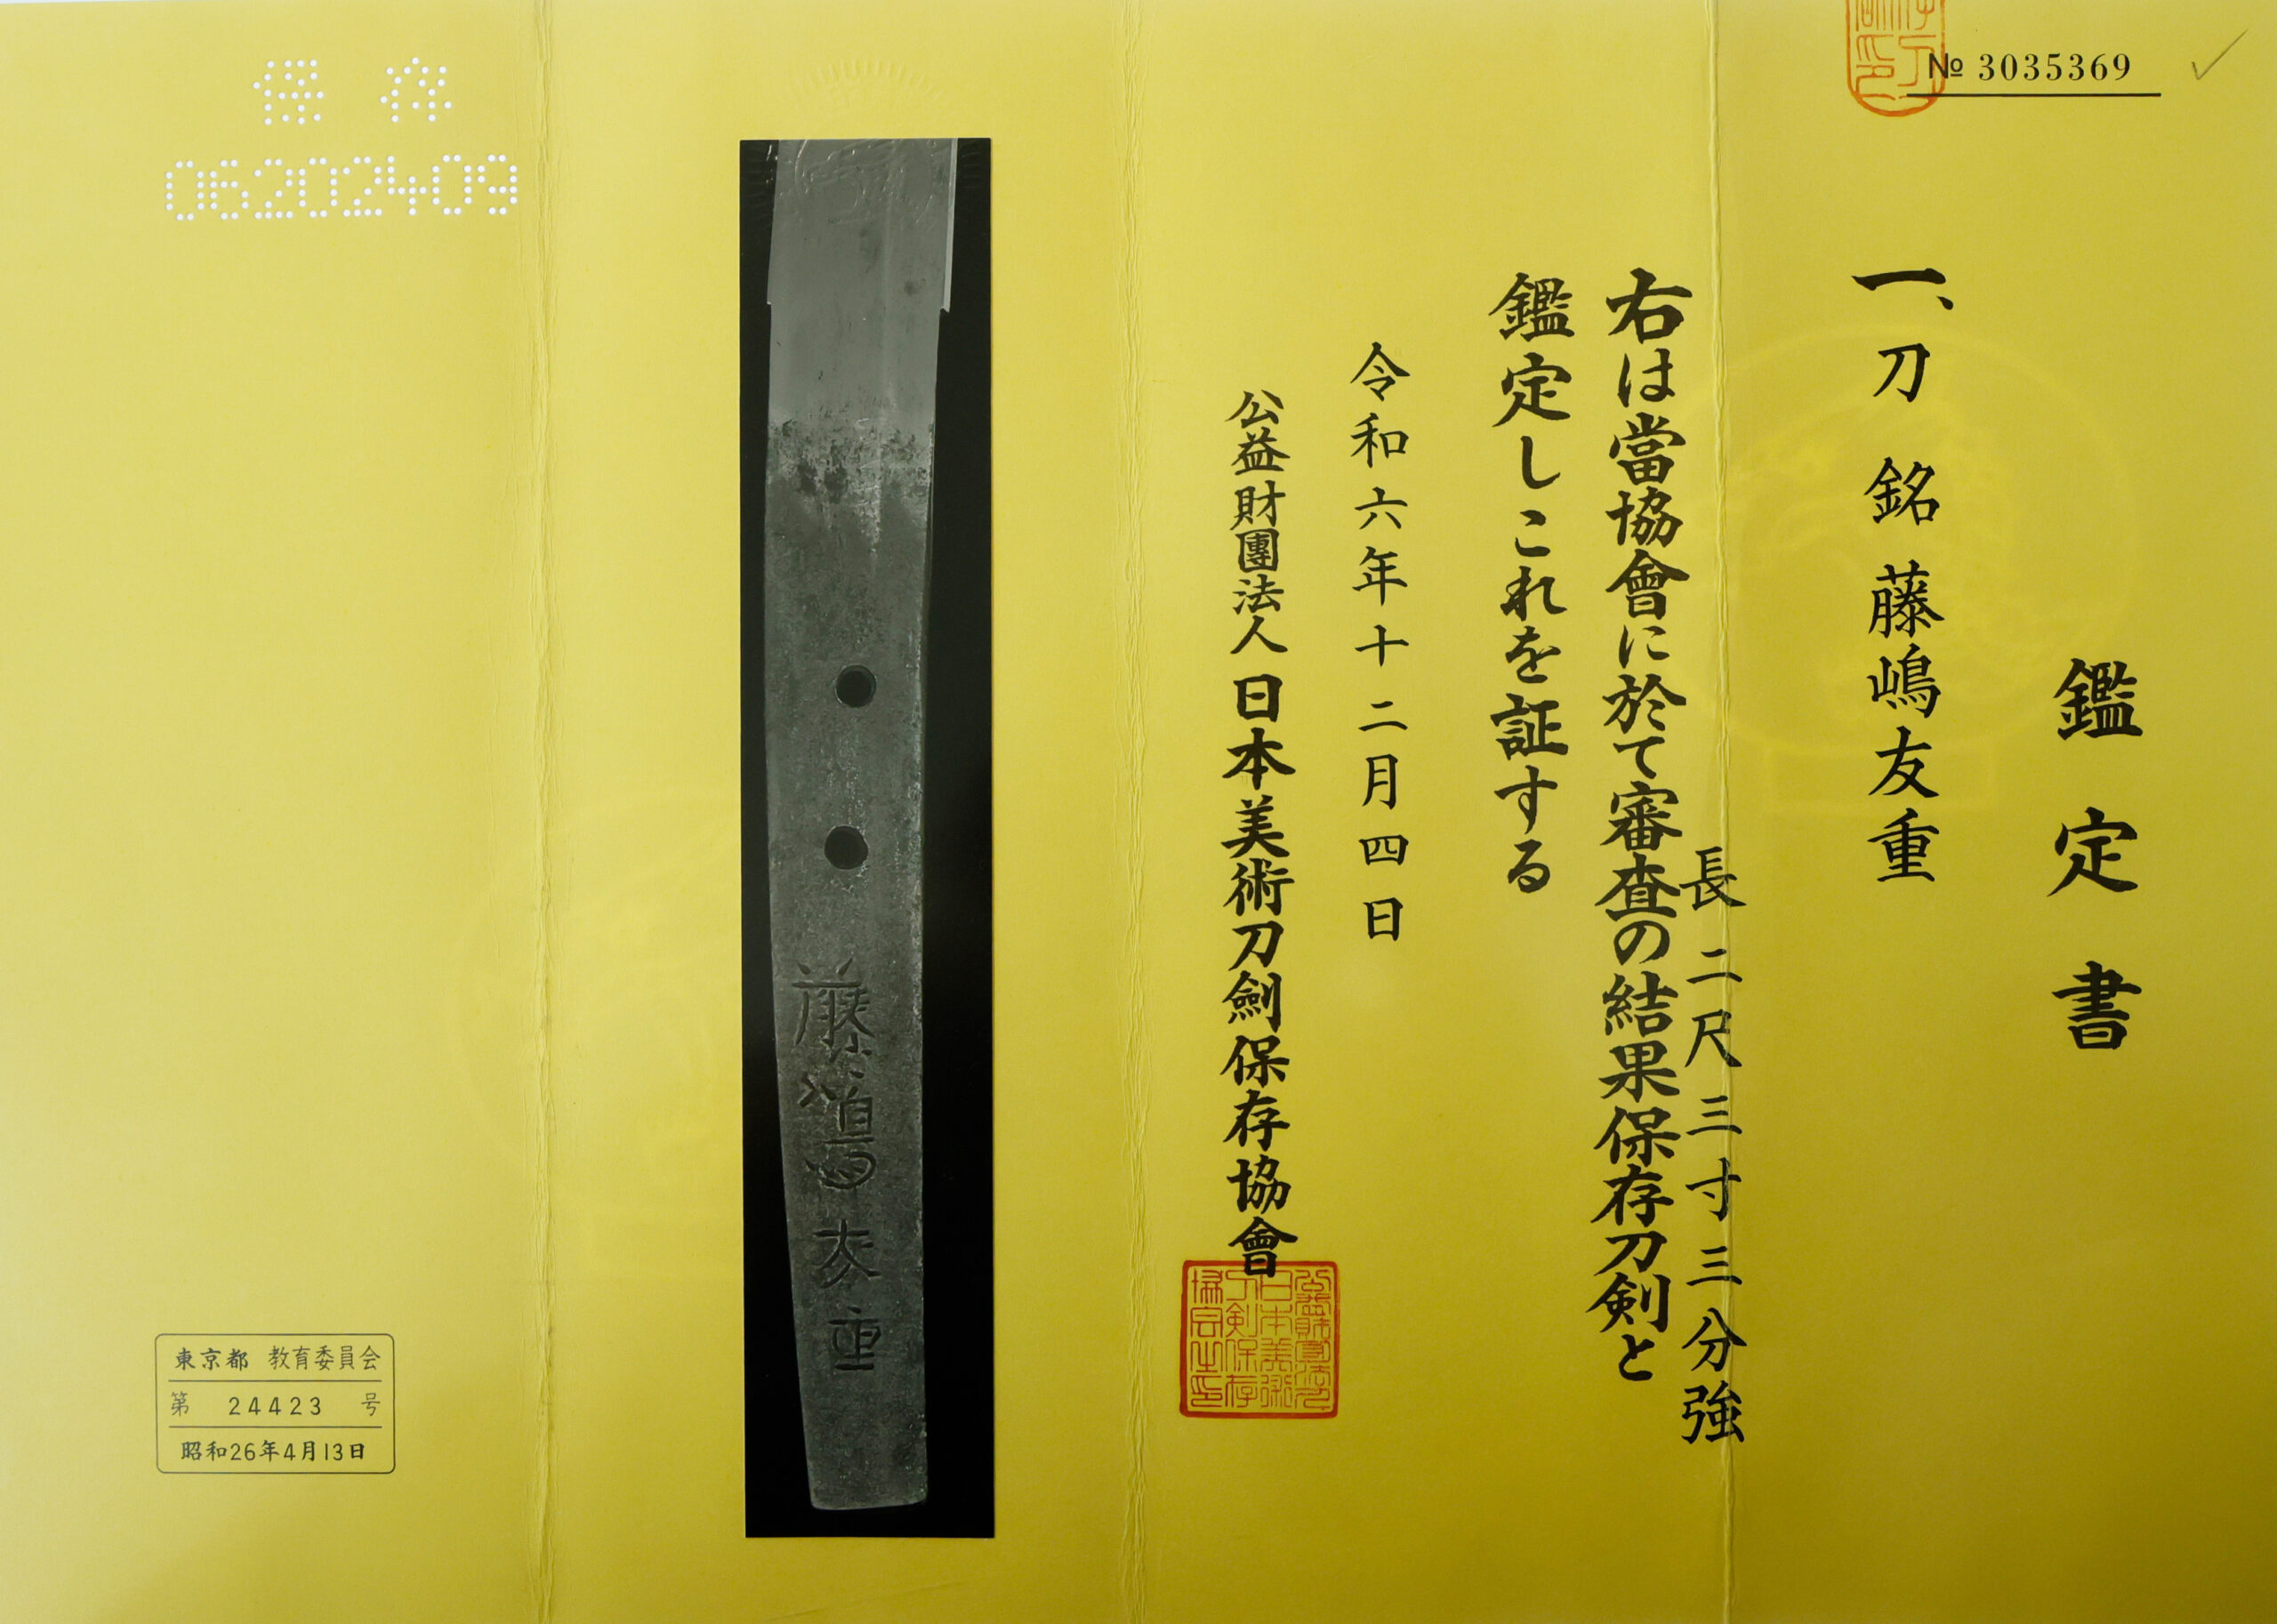 № 3035369
鑑定書
一、刀 銘 藤嶋友重
長 二尺三寸三分強
右は當協會に於て審査の結果保存刀剣と
鑑定しこれを証する
令和六年十二月四日
公益財團法人 日本美術刀劍保存協會
藤嶋友重
保存
06202409
東京都 教育委員会
第 24423 号
昭和26年4月13日